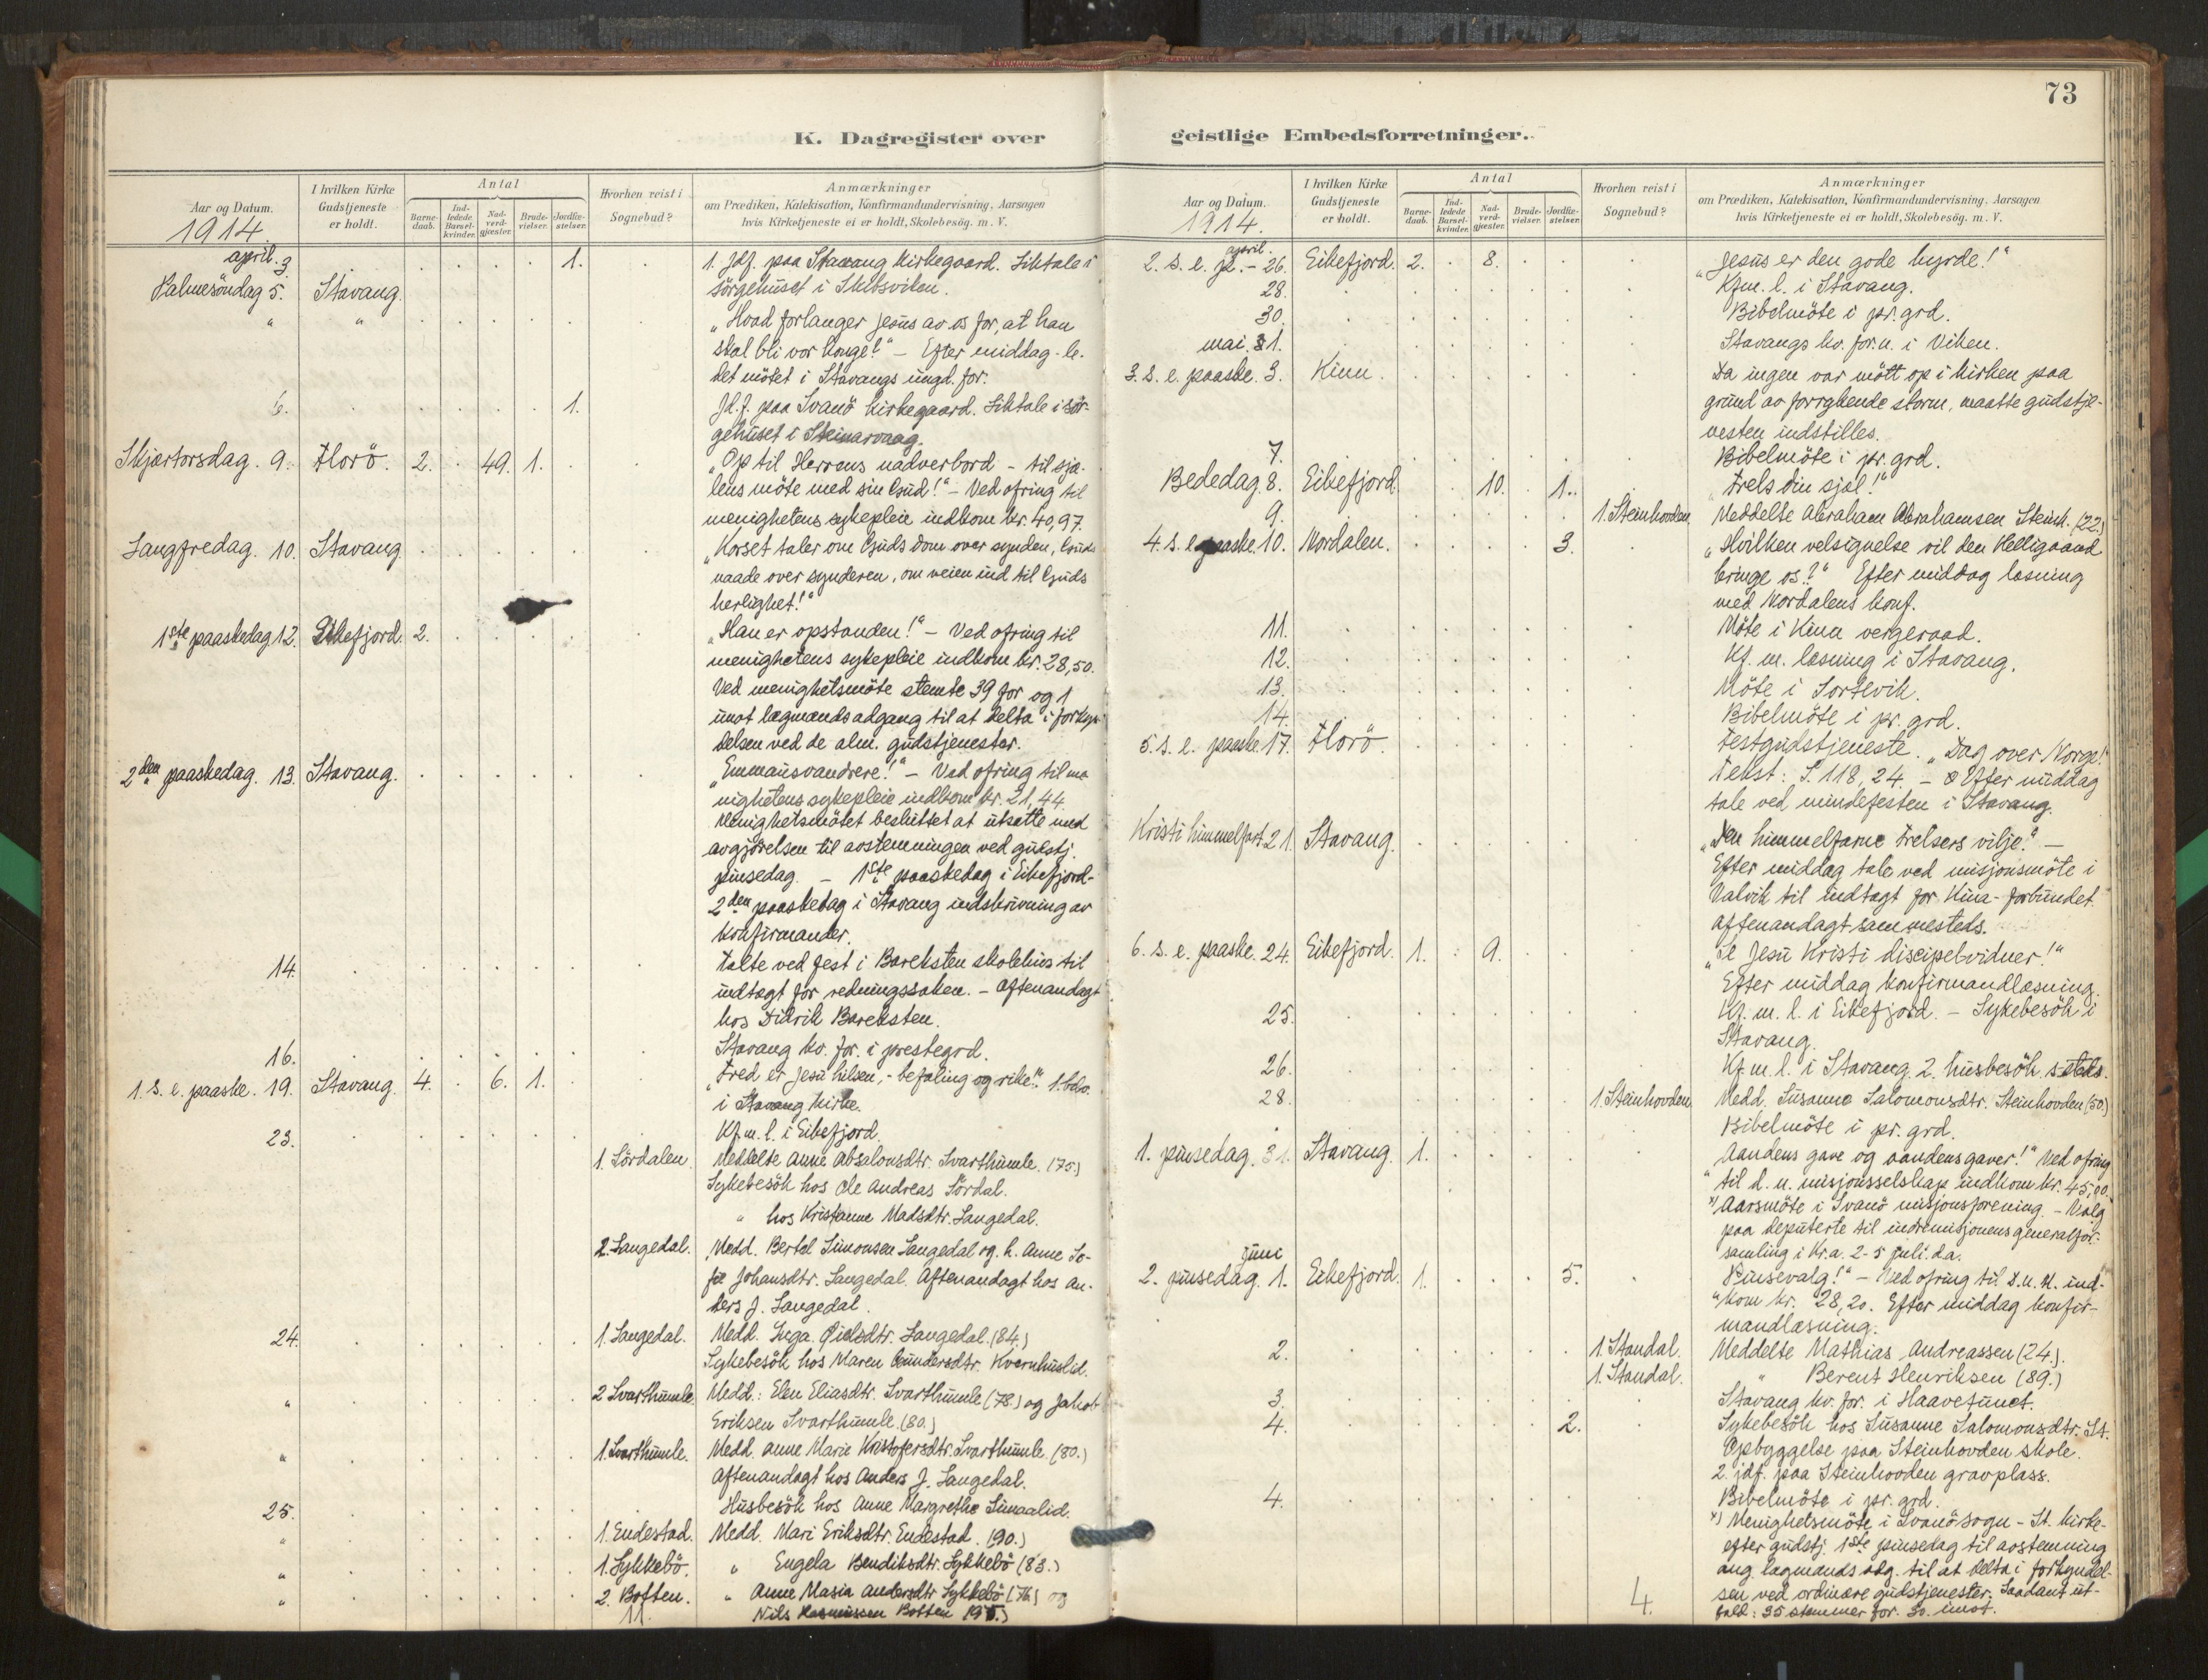 73
K. Dagregister over
Aar og Datum.
1914.
I hvilken Kirke Gudstjeneste er holdt.
Antal
Barne-daab.
Ind-ledede Barsel-kvinder.
Nad-verd-gjæster.
Brude-vielser.
Jordfæ-stelser.
Hvorhen reist i Sognebud?
Anmærkninger
om Prædiken, Katekisation, Konfirmandundervisning. Aarsagen
hvis Kirketjeneste ei er holdt, Skolebesög. m. V.
april 3. 1. 1. jdf. paa Stavang kirkegaard. Liktale i
Palmesöndag 5. Stavang. sörgehuset i
" " „Hvad forlanger Jesus av os for, at han
skal bli vor konge?" – Efter middag le-
det mötet i Stavangs ungd. for.
6. 1. Jd.f. paa Svanö kirkegaard. Liktale i sör-
gehuset i
Skjærtorsdag. 9. Florö. 2. 49. 1. „Op til Herrens nadverbord – til sjæ-
lens möte med sin Gud!" – Ved ofring til
menighetens sykepleie indkom kr. 40,97.
Langfredag. 10. Stavang. „Korset taler om Guds dom over synden, Guds
naade over synderen, om veien ind til Guds
herlighet!"
1ste paaskedag 12. Eikefjord. 2. „Han er opstanden!" – Ved ofring til
menighetens sykepleie indkom kr. 28,50.
Ved menighetsmöte stemte 39 for og 1
imot lægmænds adgang til at delta i forkyn-
delsen ved de alm. gudstjenester.
2den paaskedag. 13. Stavang. „Emmausvandrere!" – Ved ofring til me-
nighetens sykepleie indkom kr. 21,44.
Menighetsmötet besluttet at utsætte med
avgjörelsen til avstemningen ved gudstj.
pinsedag. – 1ste paaskedag i Eikefjord –
2den paaskedag i Stavang indskrivning av
konfirmander.
14. Talte ved fest i Bareksten skolehus til
indtægt for redningssaken. – Aftenandagt
hos Didrik Bareksten.
16. Stavang kv. for. i prestegrd.
1. s. e. paaske. 19. Stavang. 4. 6. 1. „Fred er Jesu hilsen, – befaling og rike!"
i Stavang kirke.
23. Kf.m. l. i Eikefjord.
1. Sördalen. Meddelte Anne Absalonsdtr. Svarthumle. (75.)
Sykebesök hos Ole Andreas Sördal.
" hos Kristianne Madsdtr. Langedal.
2. Langedal. Medd. Bertel Simonsen Langedal og h. Anne So-
fie Johansdtr. Langedal. Aftenandagt hos An-
ders J. Langedal.
24. 1. Langedal. Medd. Inga Langedal. (84.)
Sykebesök hos Maren Gundersdtr. Kvernhuslid.
" 2 Svarthumle. Medd.: Elen Eliasdtr. Svarthumle (78.) og Jakob
Eriksen Svarthumle. (80.)
" 1. Svarthumle. Medd. Anne Marie Kristofersdtr. Svarthumle. (80.)
Aftenandagt hos Anders J. Langedal.
25. Husbesök hos Anne Margrethe
" 1. Endestad. Medd. Mari Eriksdtr. Endestad. (90.)
" 1. Sykkebö. " Engela Bendiksdtr. Sykkebö (83.)
" 2. Botten. " Anne Maria Andersdtr. Sykkebö (76) og
11. Nils Rasmussen Botten
geistlige Embedsforretninger.
Aar og Datum.
1914.
I hvilken Kirke Gudstjeneste er holdt.
Antal
Barne-daab.
Ind-ledede Barsel-kvinder.
Nad-verd-gjæster.
Brude-vielser.
Jordfæ-stelser.
Hvorhen reist i Sognebud?
Anmærkninger
om Prædiken, Katekisation, Konfirmandundervisning. Aarsagen
hvis Kirketjeneste ei er holdt, Skolebesög. m. V.
2. s. e. p. april – 26. Eikefjord. 2. 8. „Jesus er den gode hyrde!"
28. Kfm. l. i Stavang.
30. Bibelmöte i pr. grd.
mai. 1. Stavangs kv. for. u. i Viken.
3. s. e. paaske. 3. Kinn. Da ingen var mött op i kirken paa
grund av forrykende storm, maatte gudstje-
nesten indstilles.
7. Bibelmöte i pr. grd.
Bededag. 8. Eikefjord. 10. 1. „Frels din sjæl!"
9. 1. Steinhovden. Meddelte Abraham Abrahamsen Steinh. (22.)
4. s. e. paaske 10. Nordalen. 3. „Hvilken velsignelse vil den Helligaand
bringe os?" Efter middag læsning
med Nordalens konf.
11. Möte i Kinn vergeraad.
12. Kf. m. læsning i Stavang.
13. Möte i Sortevik.
14. Bibelmöte i pr. grd.
5. s. e. paaske 17. Florö. Festgudstjeneste. „Dag over Norge!"
Tekst: S. 118, 24. – Efter middag
tale ved mindefesten i Stavang.
Kristi himmelfart 21. Stavang. „Den himmelfarne frelsers vilje." –
Efter middag tale ved misjonsmöte i
Valvik til indtægt for Kina-forbundet.
Aftenandagt sammesteds.
6. s. e. paaske. 24. Eikefjord. 1. 9. Jesu Kristi discipelvidner!"
Efter middag konfirmandlæsning.
25. Kf. m. l. i Eikefjord. – Sykebesök i
Stavang.
26. Kf. m. l. i Stavang. 2. husbesök
28. 1. Steinhovden. Medd. Susanne Salomonsdtr. Steinhovden (50.)
Bibelmöte i pr. grd.
1. pinsedag. 31. Stavang. 1. „Aandens gave og aandens gaver!" Ved ofring
til d. n. misjonsselskap indkom kr. 45,00.
x) Aarsmöte i Svanö misjonsforening. – Valg
paa deputerte til indremisjonens generalfor-
samling i Kr.a. 2-5 juli d.a.
juni
2. pinsedag. 1. Eikefjord. 1. 5. „Pinsevalg!" – Ved ofring til D.n.M. ind-
kom kr. 28,20. Efter middag konfir-
mandlæsning.
2. 1. Standal. Meddelte Mathias Andreassen (24.).
1. Standal. " Berent Henriksen (89.)
3. Stavang kv. for. i Haavetunet.
4. 2. Sykebesök hos Susanne Salomonsdtr. St.
Opbyggelse paa Steinhovden skole.
2. jdf. paa Steinhovden gravplass.
4. Bibelmöte i pr. grd.
x) Menighetsmöte i Svanö sogn – St. kirke-
efter gudstj. 1ste pinsedag til avstemning
ang. lægmænds adg. til at delta i forkyndel-
sen ved ordinære gudstjenester. Saadant ut-
4. fald: 35 stemmer for. 30. imot.